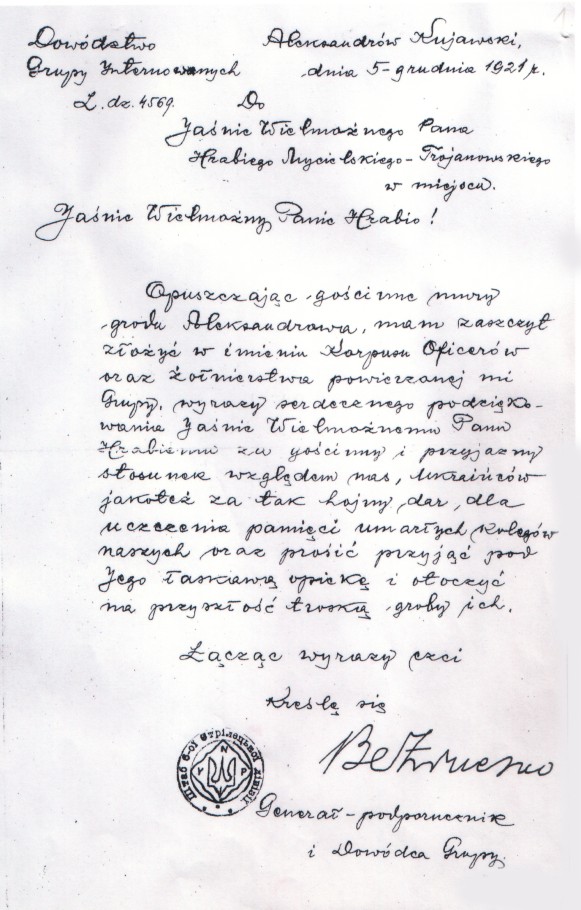 1
Dowództwo
Grupy Internowanych
L. dz. 4569.
Aleksandrów Kujawski,
dnia 5-grudnia 1921 r.
Do
Jaśnie Wielmożnego Pana
Hrabiego Mycielskiego-Trojanowskiego
w miejscu.
Jaśnie Wielmożny Panie Hrabio!
Opuszczając gościnne mury
grodu Aleksandrowa, mam zaszczyt
złożyć w imieniu Korpusu Oficerów
oraz żołnierstwa powierzonej mi
Grupy, wyrazy serdecznego podzięko-
wania Jaśnie Wielmożnemu Panu
Hrabiemu za gościnny i przyjazny
stosunek względem nas, Ukraińców
jakoteż za tak hojny dar, dla
uczczenia pamięci umarłych kolegów
naszych oraz prosić przyjąć pod
Jego łaskawą opiekę i otoczyć
na przyszłość troską groby ich.
Łącząc wyrazy czci
Kreślę się
Штаб 6-ої Стрілецької дивізії
У N Р
Generał-podporucznik
i Dowódca Grupy.